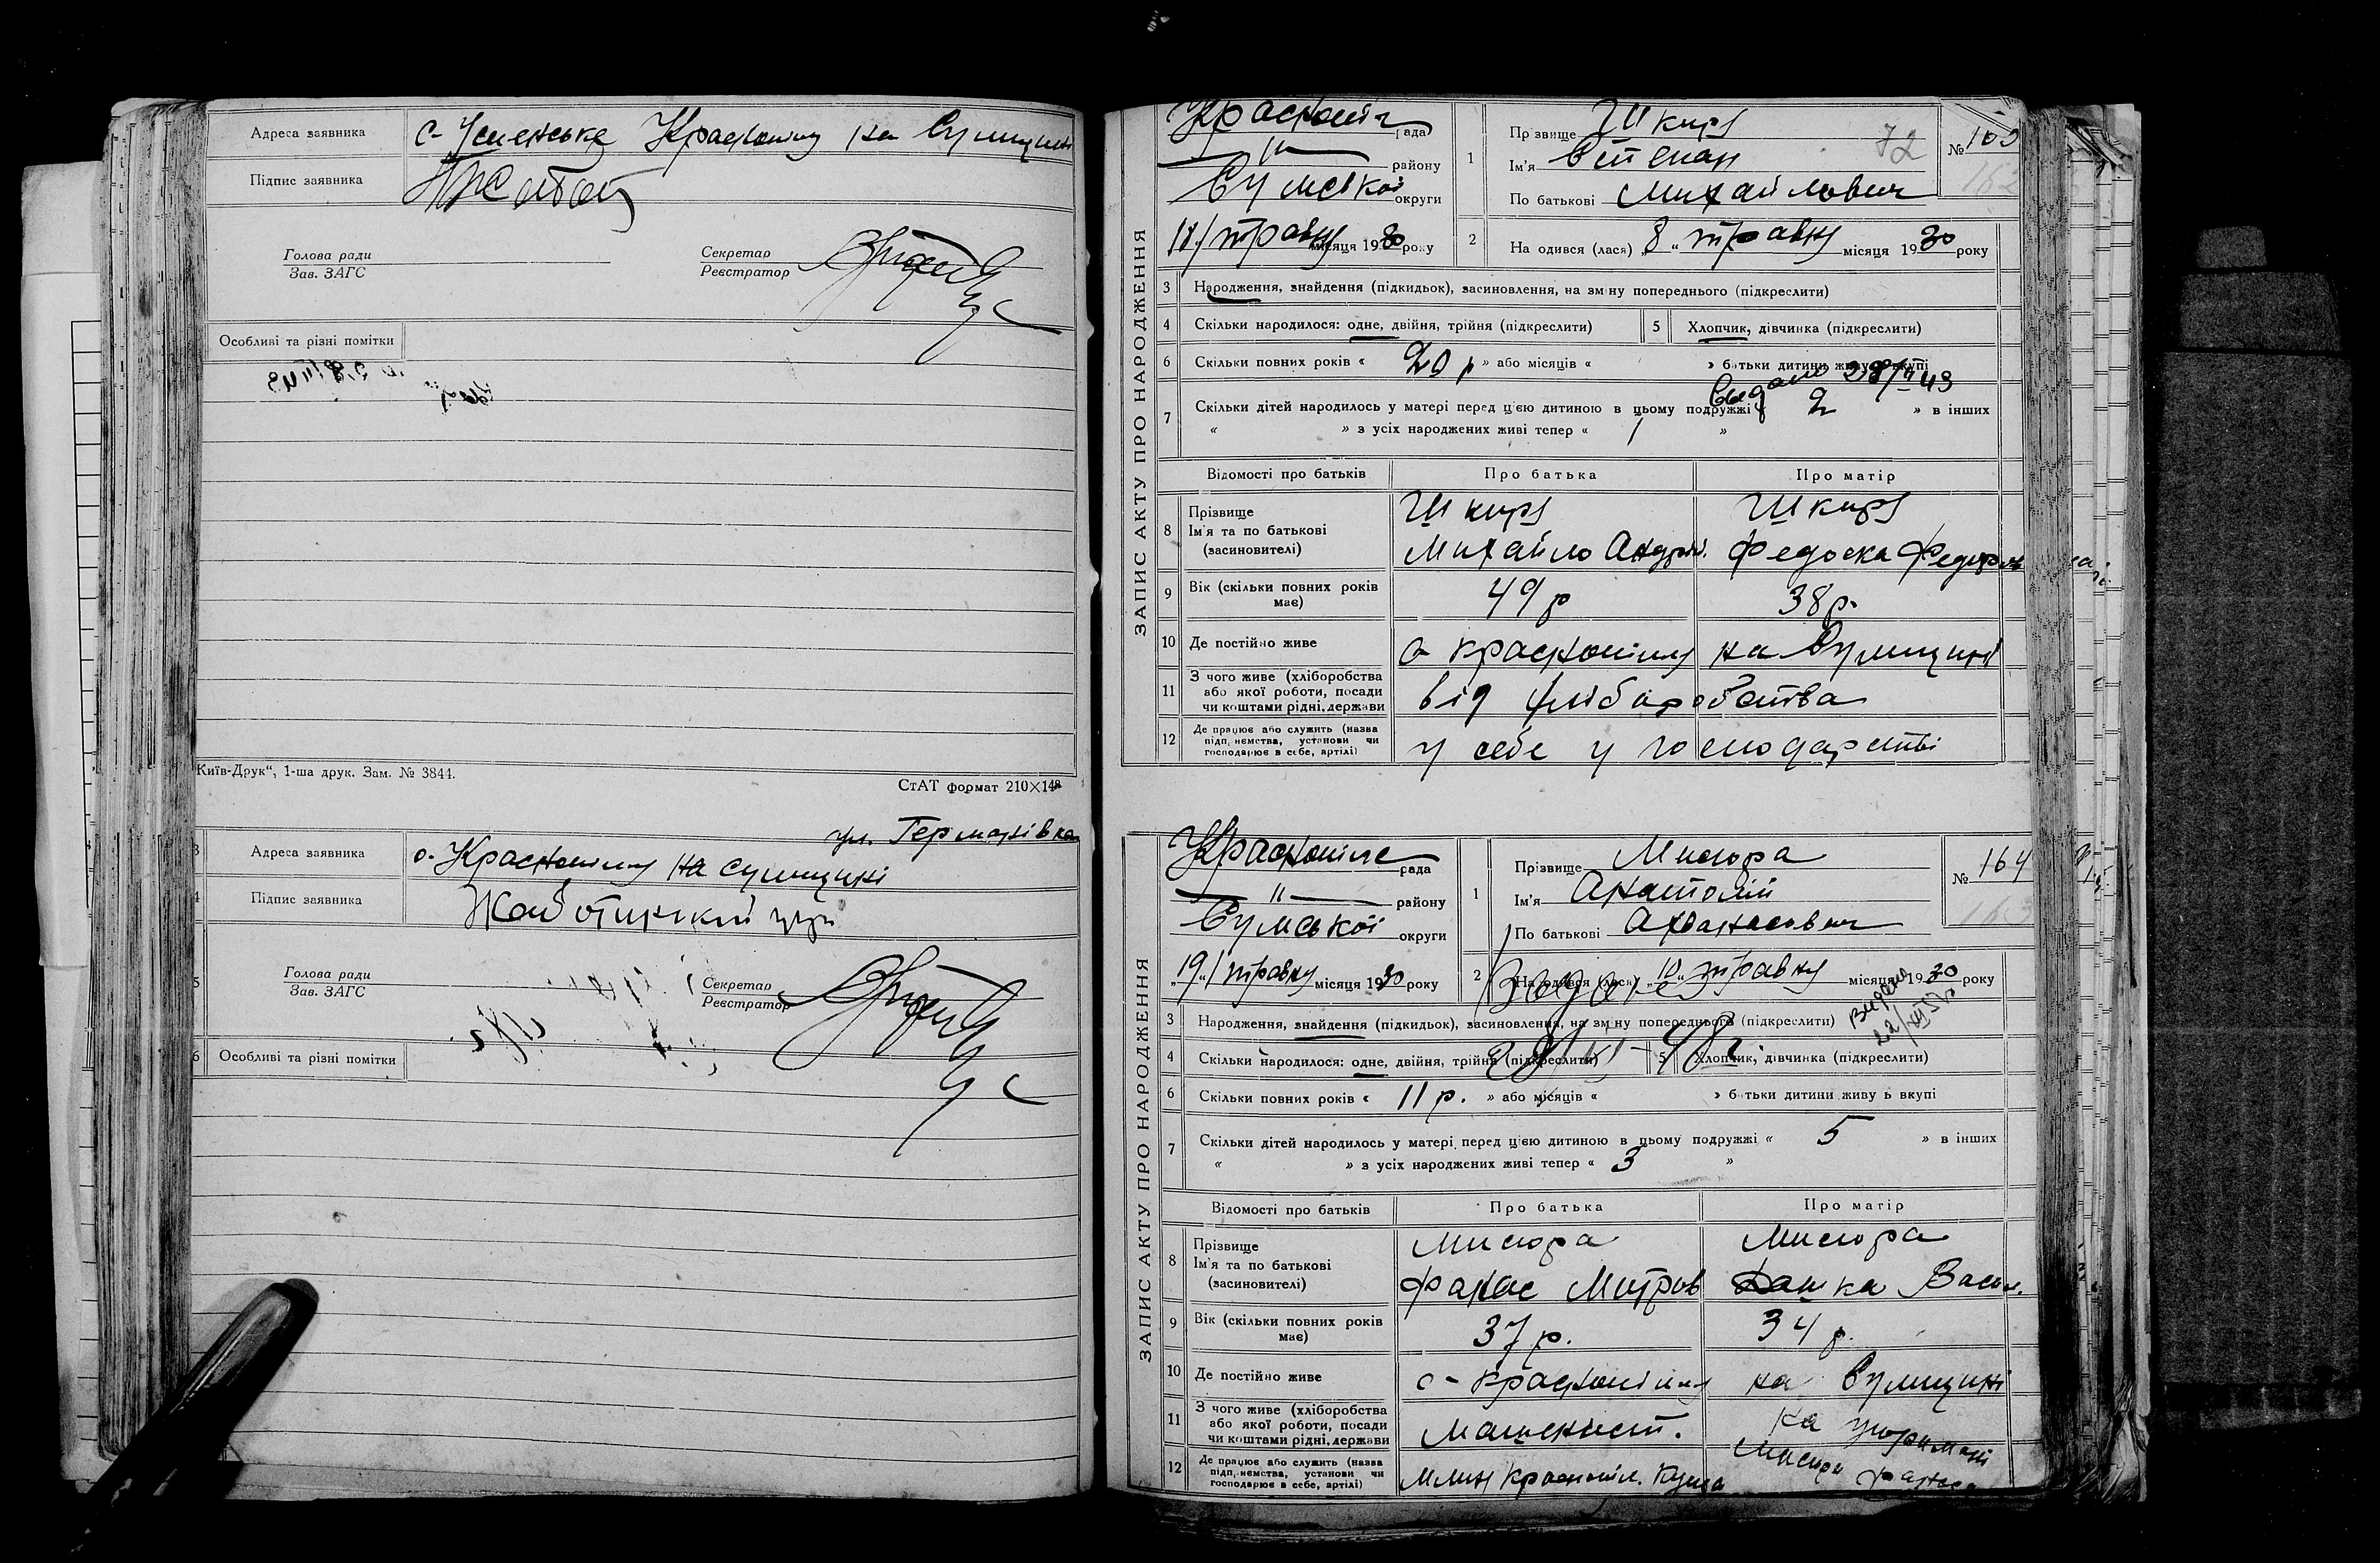 Адреса заявника с. Успенське Краснопілля на Сумщині
Підпис заявника
Голова ради
Зав. ЗАГС
Секретар
Реєстратор
Особливі та різні помітки
Київ-Друк“, 1-ша друк. Зам. № 3844.
СтАТ формат 210×148
вул. Германівка
Адреса заявника с. Краснопілля на Сумщині
Підпис заявника Жаботинський
Голова ради
Зав. ЗАГС
Секретар
Реєстратор
6 Особливі та різні помітки
ЗАПИС АКТУ ПРО НАРОДЖЕННЯ
Краснопіл рада
— „ — району
Сумської округи
18/ травня місяця 1930 року
1 Прізвище Шкиря
72
№ 163
162
Ім'я Степан
По батькові Михайлович
2 Народився (лася) „8“ травня місяця 1930 року
3 Народження, знайдення (підкидьок), засиновлення, на зміну попереднього (підкреслити)
4 Скільки народилося: одне, двійня, трійня (підкреслити)
5 Хлопчик, дівчинка (підкреслити)
6 Скільки повних років « 20 р » або місяців « » батьки дитини живуть вкупі
Видано 28/II 43
7 Скільки дітей народилось у матері перед цією дитиною в цьому подружжі « 2 » в інших
« » з усіх народжених живі тепер « 1 »
Відомості про батьків Про батька Про матір
8 Прізвище Шкиря Шкиря
Ім'я та по батькові Михайло Андрій. Федоска Федоров
(засиновителі)
9 Вік (скільки повних років має) 49 р 38 р.
10 Де постійно живе с Краснопілля на Сумщині
11 З чого живе (хліборобства або якої роботи, посади чи коштами рідні, держави від хліборобства
12 Де працює або служить (назва підприємства, установи чи господарює в себе, артілі) у себе у господарстві
ЗАПИС АКТУ ПРО НАРОДЖЕННЯ
Краснопілс рада
— „ — району
Сумської округи
„19“/ травня місяця 1930 року
1 Прізвище Мисюра
№ 164
163
Ім'я Анатолій
По батькові Афанасович
2 Народився (лася) „10“ травня місяця 1930 року
Видано
3 Народження, знайдення (підкидьок), засиновлення, на зміну попереднього (підкреслити)
4 Скільки народилося: одне, двійня, трійня (підкреслити)
5 Хлопчик, дівчинка (підкреслити)
6 Скільки повних років « 11 р. » або місяців « » батьки дитини живуть вкупі
7 Скільки дітей народилось у матері перед цією дитиною в цьому подружжі « 5 » в інших
« » з усіх народжених живі тепер « 3 »
Відомості про батьків Про батька Про матір
8 Прізвище Мисюра Мисюра
Ім'я та по батькові Фанас Митров Дашка Васил.
(засиновителі)
9 Вік (скільки повних років має) 37 р. 34 р.
10 Де постійно живе с. Краснопілля на Сумщині
11 З чого живе (хліборобства або якої роботи, посади чи коштами рідні, держави Машеніст. на утриман
12 Де працює або служить (назва підприємства, установи чи господарює в себе, артілі) Млин Краснопіл. Мисюри Фанаса